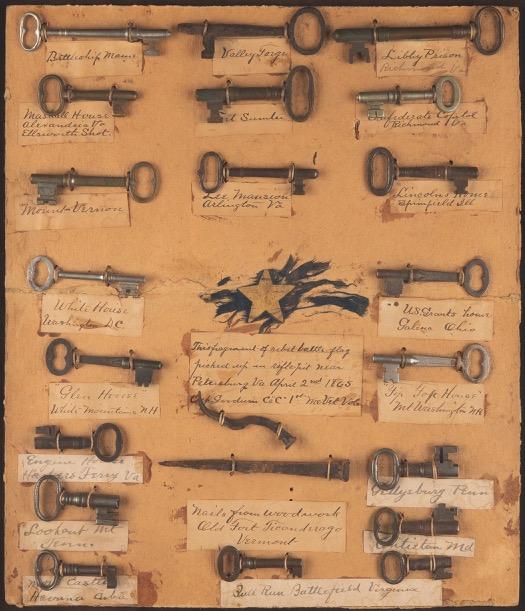 Battleship Maine
Valley Forge
Libby Prison
Richmond Va
Marshall House
Alexandria Va
Ellsworth Shot.
Sumter
Confederate Capitol
Richmond Va
Mount Vernon
Lee Mansion
Arlington Va
Lincolns home
Springfield Ill
White House
Washington D.C
U.S. Grants home
Galena Ohio
This fragment of rebel battle flag
picked up in rifle pit near
Petersburg Va April 2nd 1865
C&C 1st Me Vet Vols
Glen House
White Mountains N H
Tip Top House
Mt Washington N H
Engine House
Harpers Ferry Va
Gettysburg Penn
Nails from woodwork
Old Fort Ticonderoga
Vermont
Lookout Mt
Tenn
Antietam Md
Castle
Havana Cuba
Bull Run Battlefield Virginia